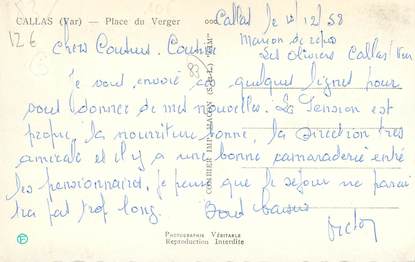 CALLAS (Var) — Place du Verger
12 €
Callas le 12/12/58
Maison de repos
Les Oliviers Callas Var
Chers Cousins. Cousine
83
je vous envoie ces quelques lignes pour
vous donner de mes nouvelles. La Pension est
propre, la nourriture bonne, la Direction très
amicale et il y a une bonne camaraderie entre
les pensionnaires, je pense que le séjour ne parai
tra pas trop long. Bons baisers
Victor
COMBIER IMP. MACON (S.-&-L.)
PHOTOGRAPHIE VÉRITABLE
Reproduction Interdite